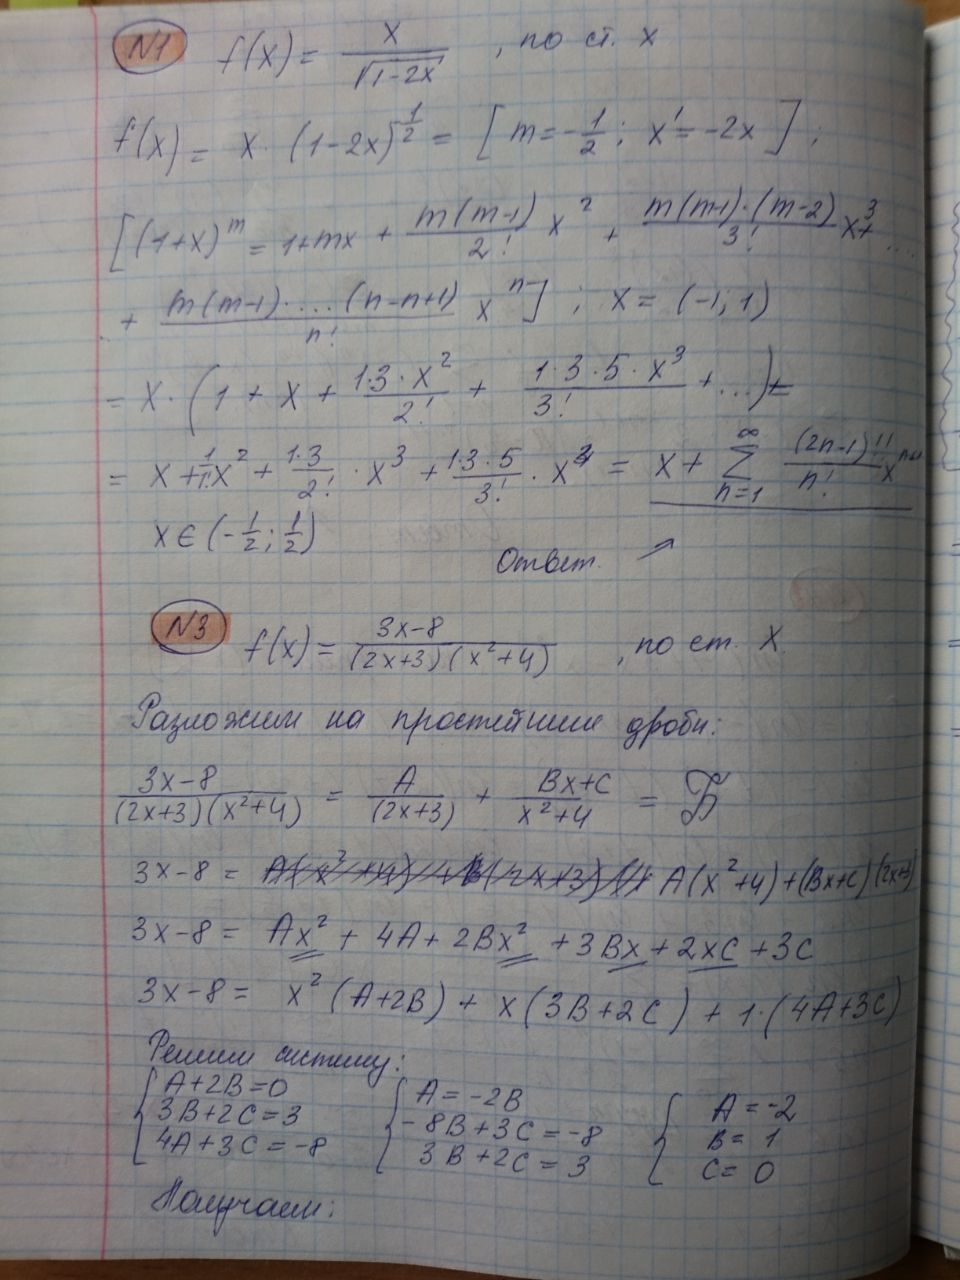 N1 f(x) = x / √(1-2x) , по ст. x
f(x) = x · (1-2x)^(-1/2) = [ m = -1/2 ; x' = -2x ] ;
[ (1+x)^m = 1+mx + m(m-1)/2! x^2 + m(m-1)·(m-2)/3! x^3 + ...
+ m(m-1)·...·(n-n+1)/n! x^n ] ; x = (-1; 1)
= x · ( 1 + x + 1·3·x^2/2! + 1·3·5·x^3/3! + ... ) =
= x + 1/1! x^2 + 1·3/2! · x^3 + 1·3·5/3! · x^4 = x + ∑_(n=1)^∞ (2n-1)!!/n! x^(n+1)
x ∈ (-1/2; 1/2)
Ответ. ↗
N3 f(x) = (3x-8) / ((2x+3)(x^2+4)) , по ст. x
Разложим на простейшие дроби:
(3x-8) / ((2x+3)(x^2+4)) = A/(2x+3) + (Bx+C)/(x^2+4) =
3x-8 = A(x^2+4)+(Bx+C)(2x+3)
3x-8 = Ax^2 + 4A + 2Bx^2 + 3Bx + 2xC + 3C
3x-8 = x^2 (A+2B) + x (3B+2C) + 1·(4A+3C)
Решим систему:
{ A+2B=0 { A = -2B { A = -2
3B+2C=3 -8B+3C = -8 B = 1
4A+3C=-8 3B+2C = 3 C = 0
Получаем: